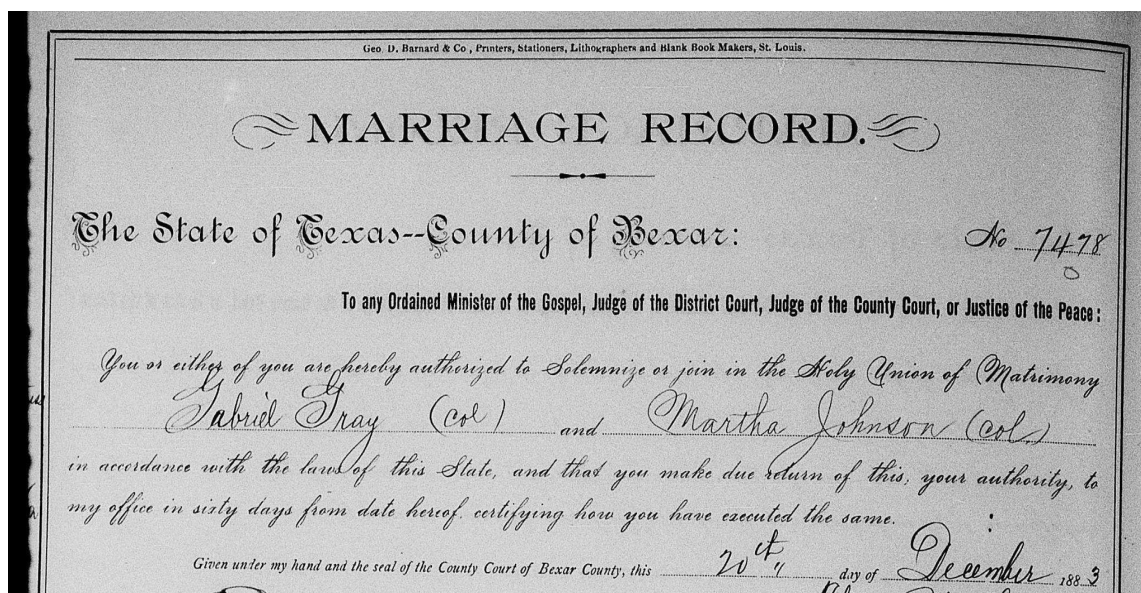 Geo. D. Barnard & Co., Printers, Stationers, Lithographers and Blank Book Makers, St. Louis.
MARRIAGE RECORD.
The State of Texas--County of Bexar: No 7478
To any Ordained Minister of the Gospel, Judge of the District Court, Judge of the County Court, or Justice of the Peace:
You or either of you are hereby authorized to Solemnize or join in the Holy Union of Matrimony
Gabriel Gray (col) and Martha Johnson (col)
in accordance with the laws of this State, and that you make due return of this, your authority, to
my office in sixty days from date hereof. certifying how you have executed the same.
Given under my hand and the seal of the County Court of Bexar County, this 20th day of December 1883